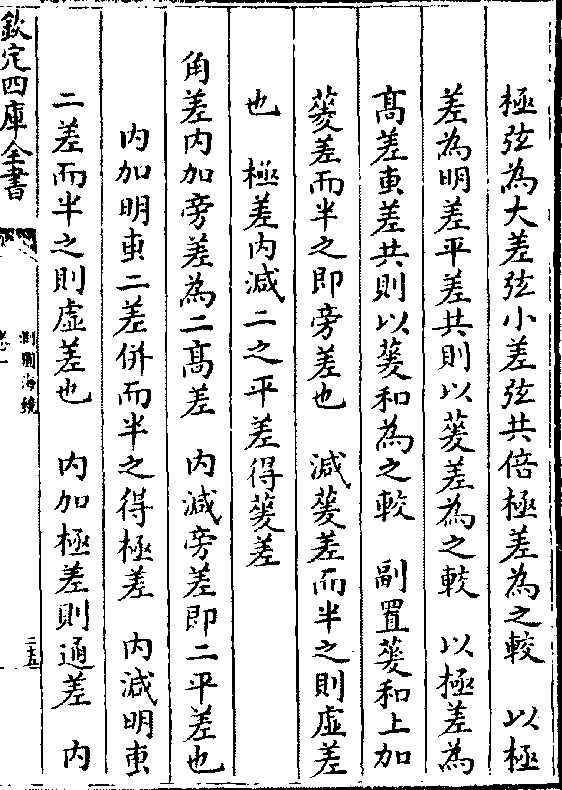 極弦為大差弦小差弦共倍極差為之較　以極
差為明差平差共則以蓌差為之較　以極差為
髙差叀差共則以蓌和為之較　副置蓌和上加
蓌差而半之即旁差也　減蓌差而半之則虛差
也　極差内減二之平差得蓌差
角差内加旁差為二髙差　内減旁差即二平差也
内加明叀二差併而半之得極差　内減明叀
二差而半之則虛差也　内加極差則通差　内
欽定四庫全書
測圓海鏡
卷一
二五